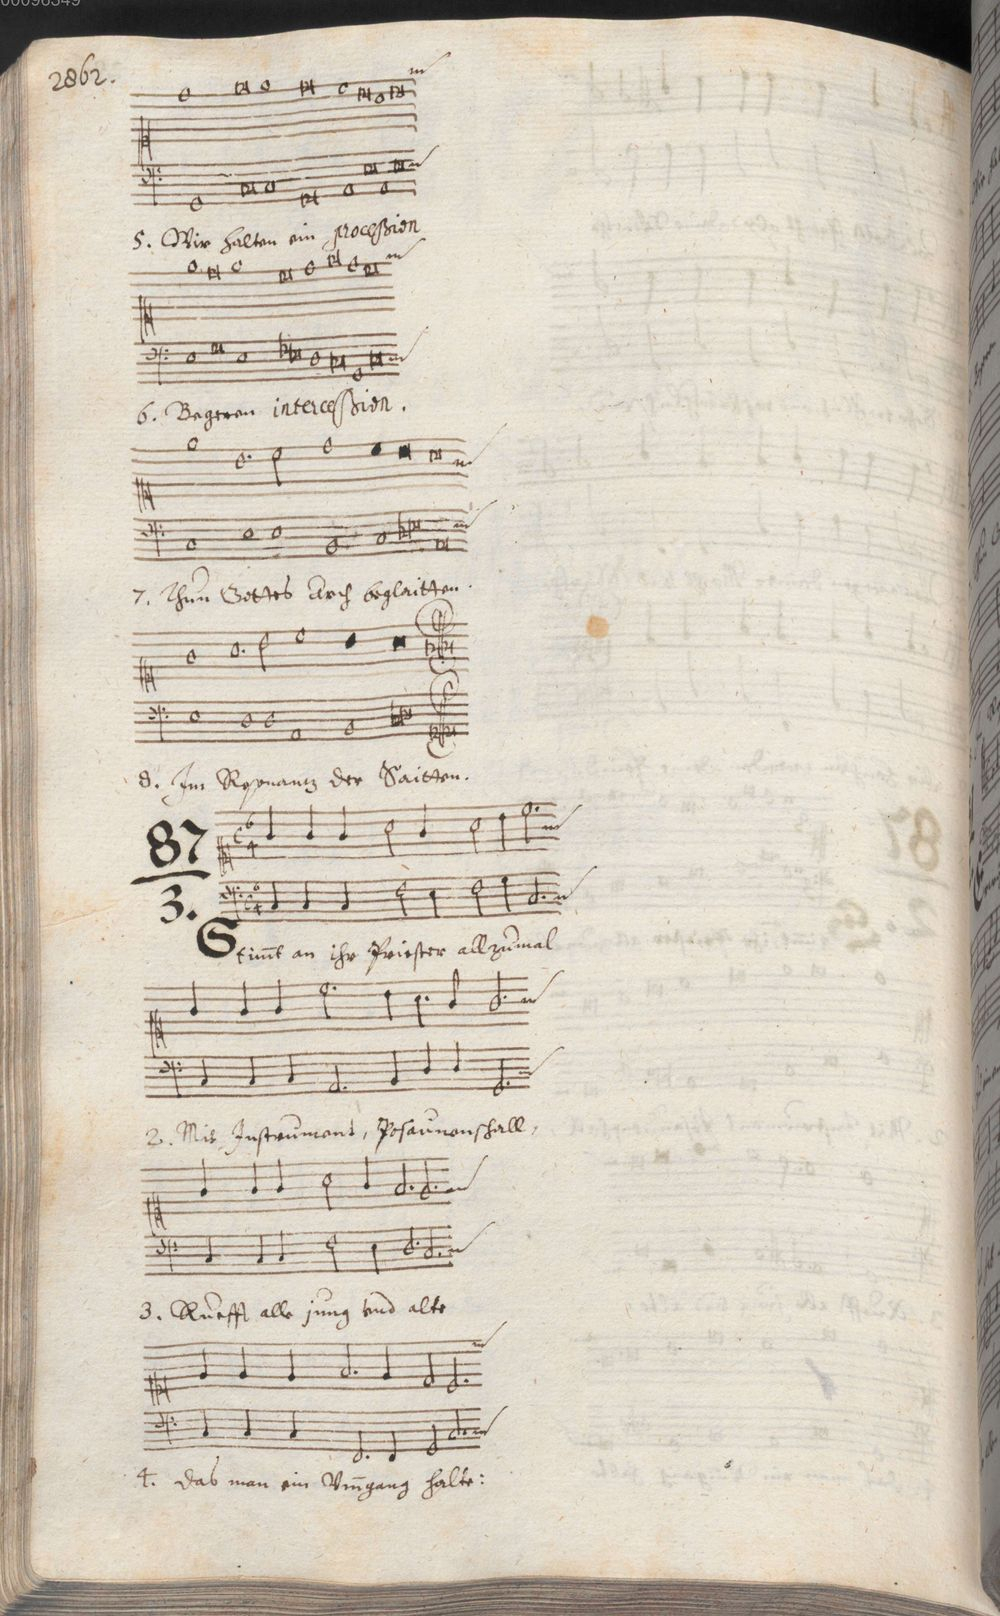 00096349
2862.
5. Wir halten ein proceßion
6. Begeren interceßion.
7. Thun Gottes Arch beglaitten.
8. Im Resonantz der Saitten.
87
3.
Stim̄t an ihr Priester allzumal
2. Mit Instrument, Posaunenschall,
3. Rüefft alle jung vnd alte
4. das man ein Vm̄gang halte: